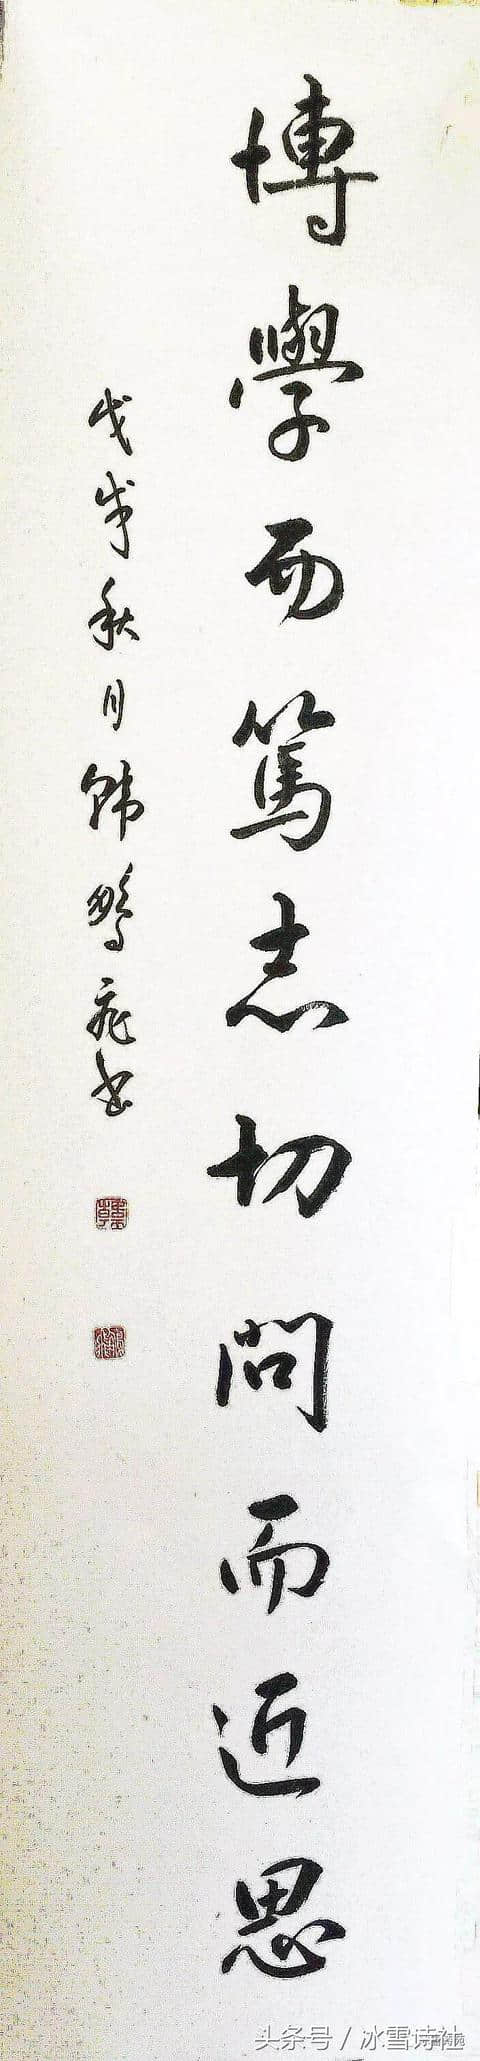 博學而篤志切問而近思
戊戌秋月韩鹏飛书
头条号／冰雪诗社